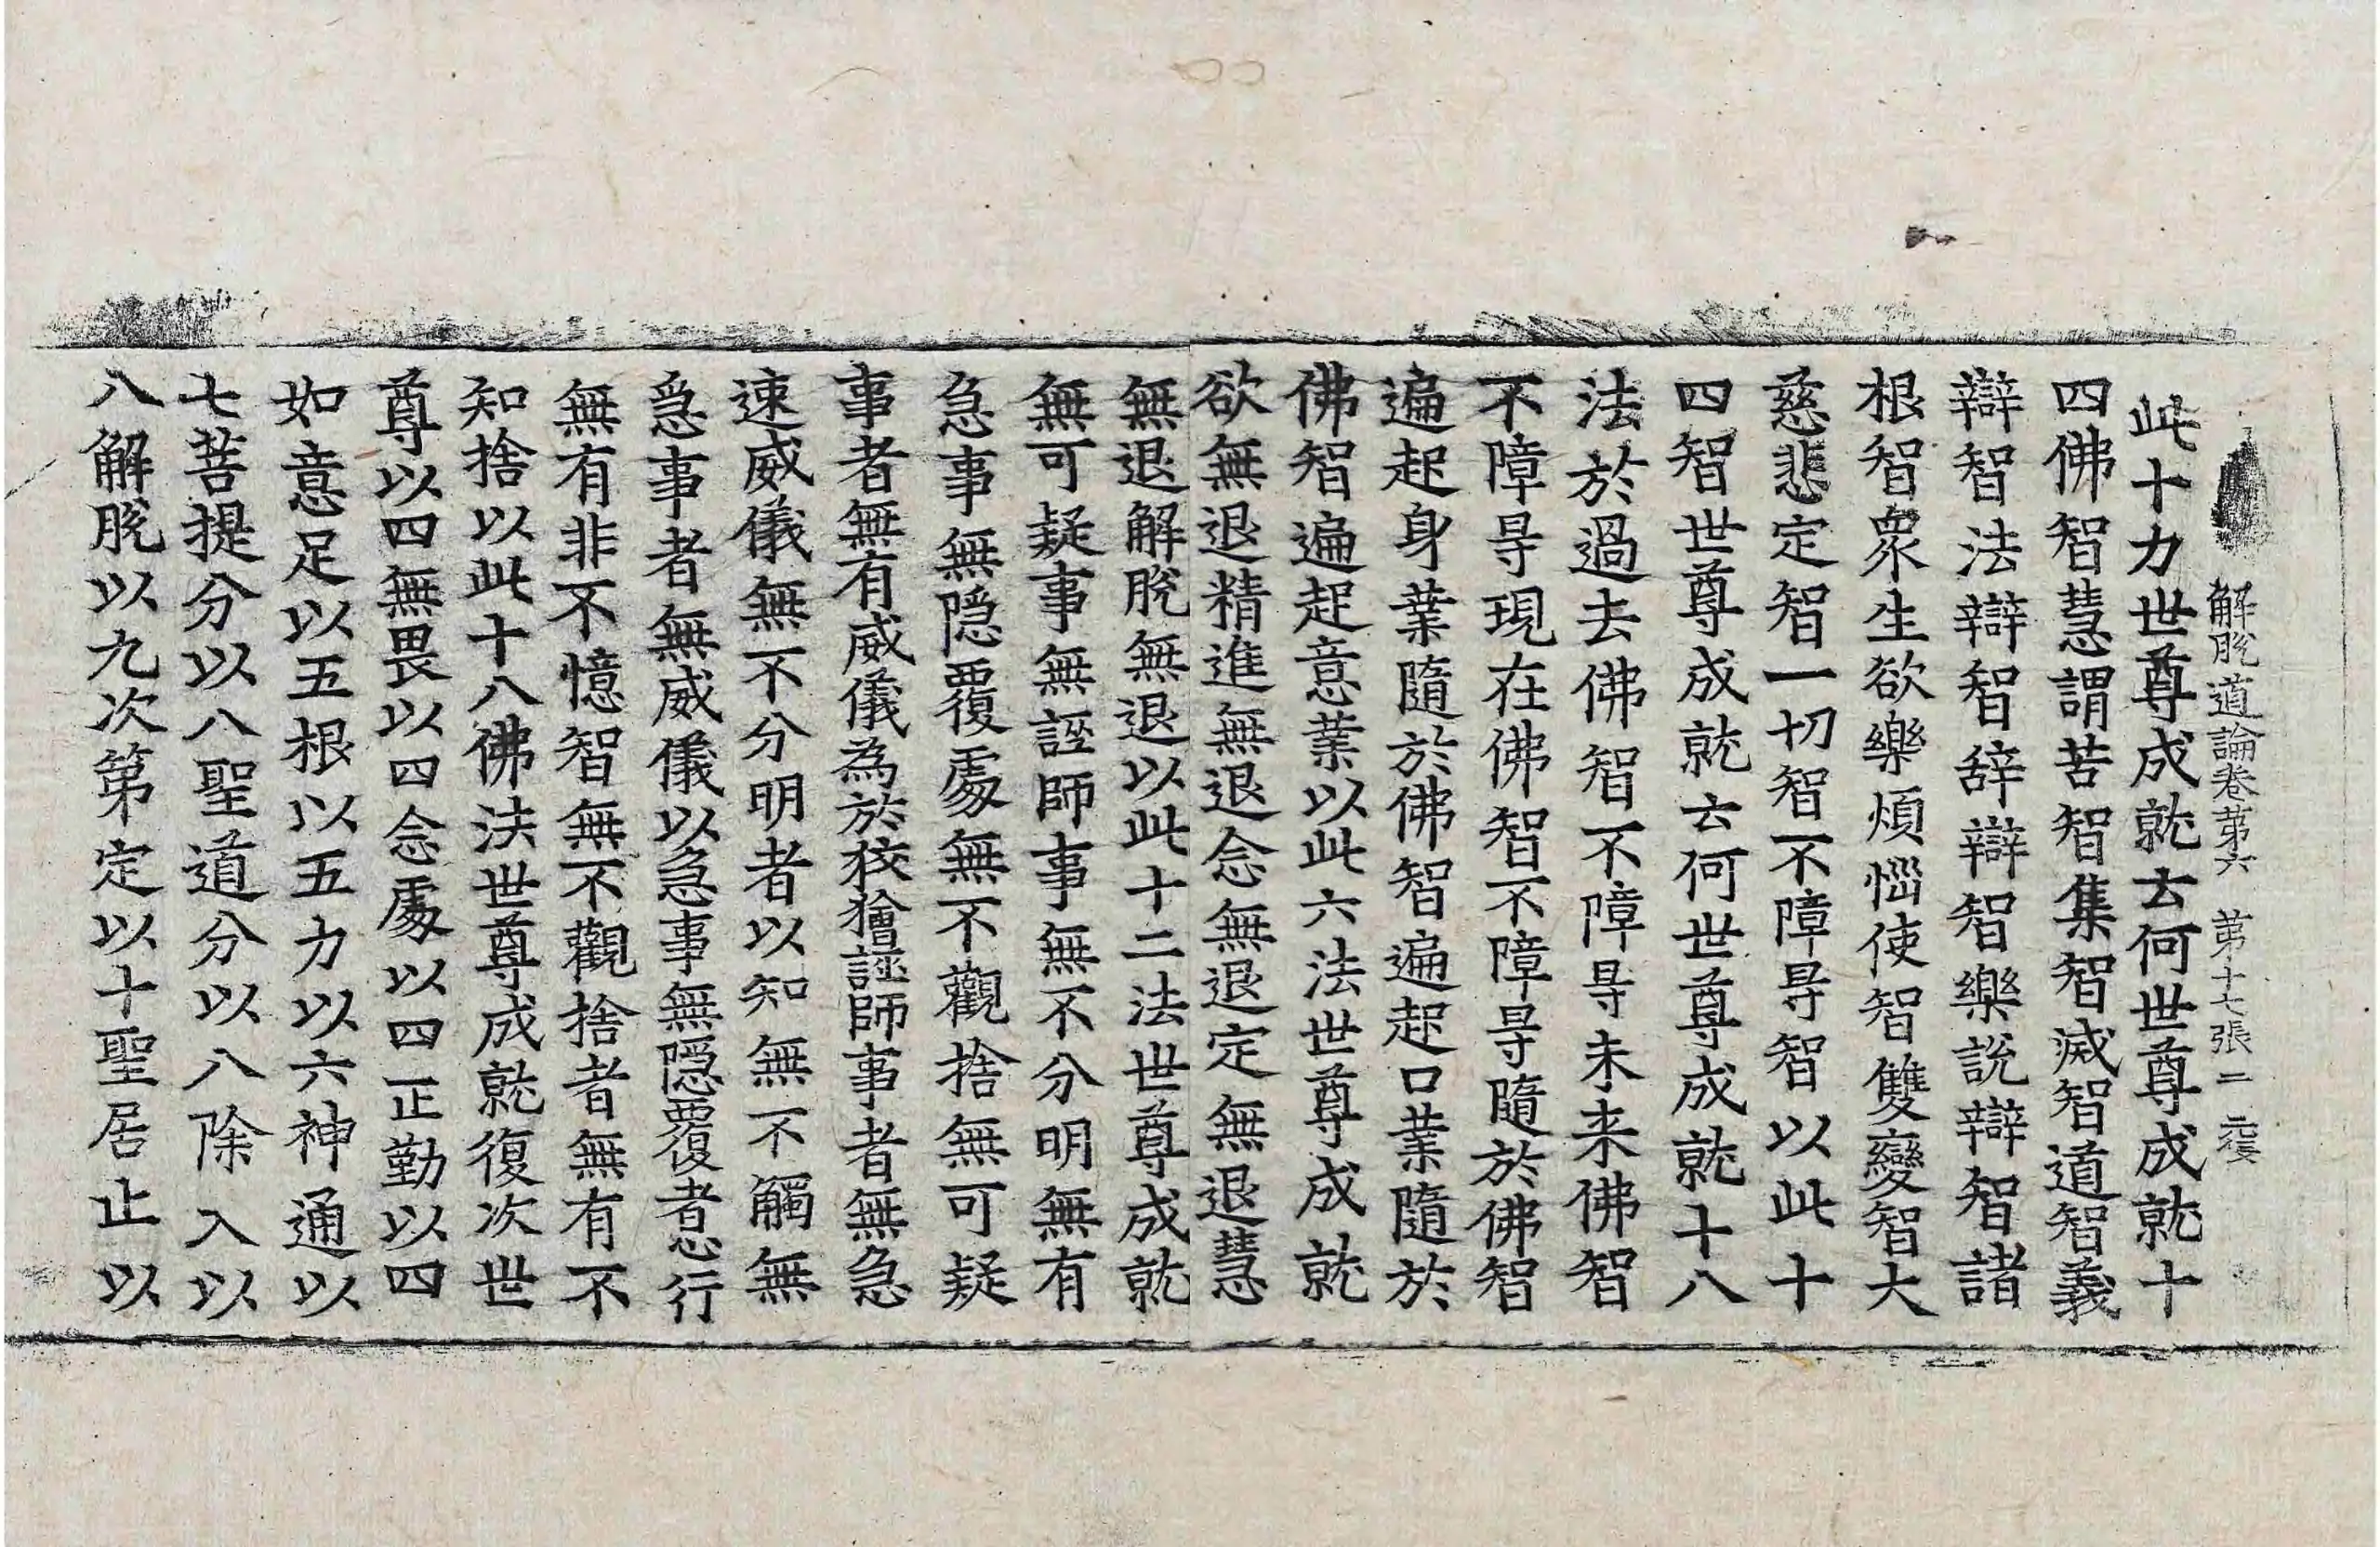 解脫道論卷第六　第十七張　二
此十力世尊成就云何世尊成就十
四佛智慧謂苦智集智滅智道智義
辯智法辯智辞辯智樂說辯智諸
根智衆生欲樂煩惱使智雙變智大
慈悲定智一切智不障㝵智以此十
四智世尊成就云何世尊成就十八
法於過去佛智不障㝵未来佛智
不障㝵現在佛智不障㝵隨於佛智
遍起身業隨於佛智遍起口業隨於
佛智遍起意業以此六法世尊成就
欲無退精進無退念無退定無退慧
無退解脫無退以此十二法世尊成就
無可疑事無誣師事無不分明無有
急事無隱覆處無不觀捨無可疑
事者無有威儀為於狡獪誣師事者無急
速威儀無不分明者以知無不觸無
急事者無威儀以急事無隱覆者惡行
無有非不憶智無不觀捨者無有不
知捨以此十八佛法世尊成就復次世
尊以四無畏以四念處以四正勤以四
如意足以五根以五力以六神通以
七菩提分以八聖道分以八除入以
八解脫以九次第定以十聖居止以